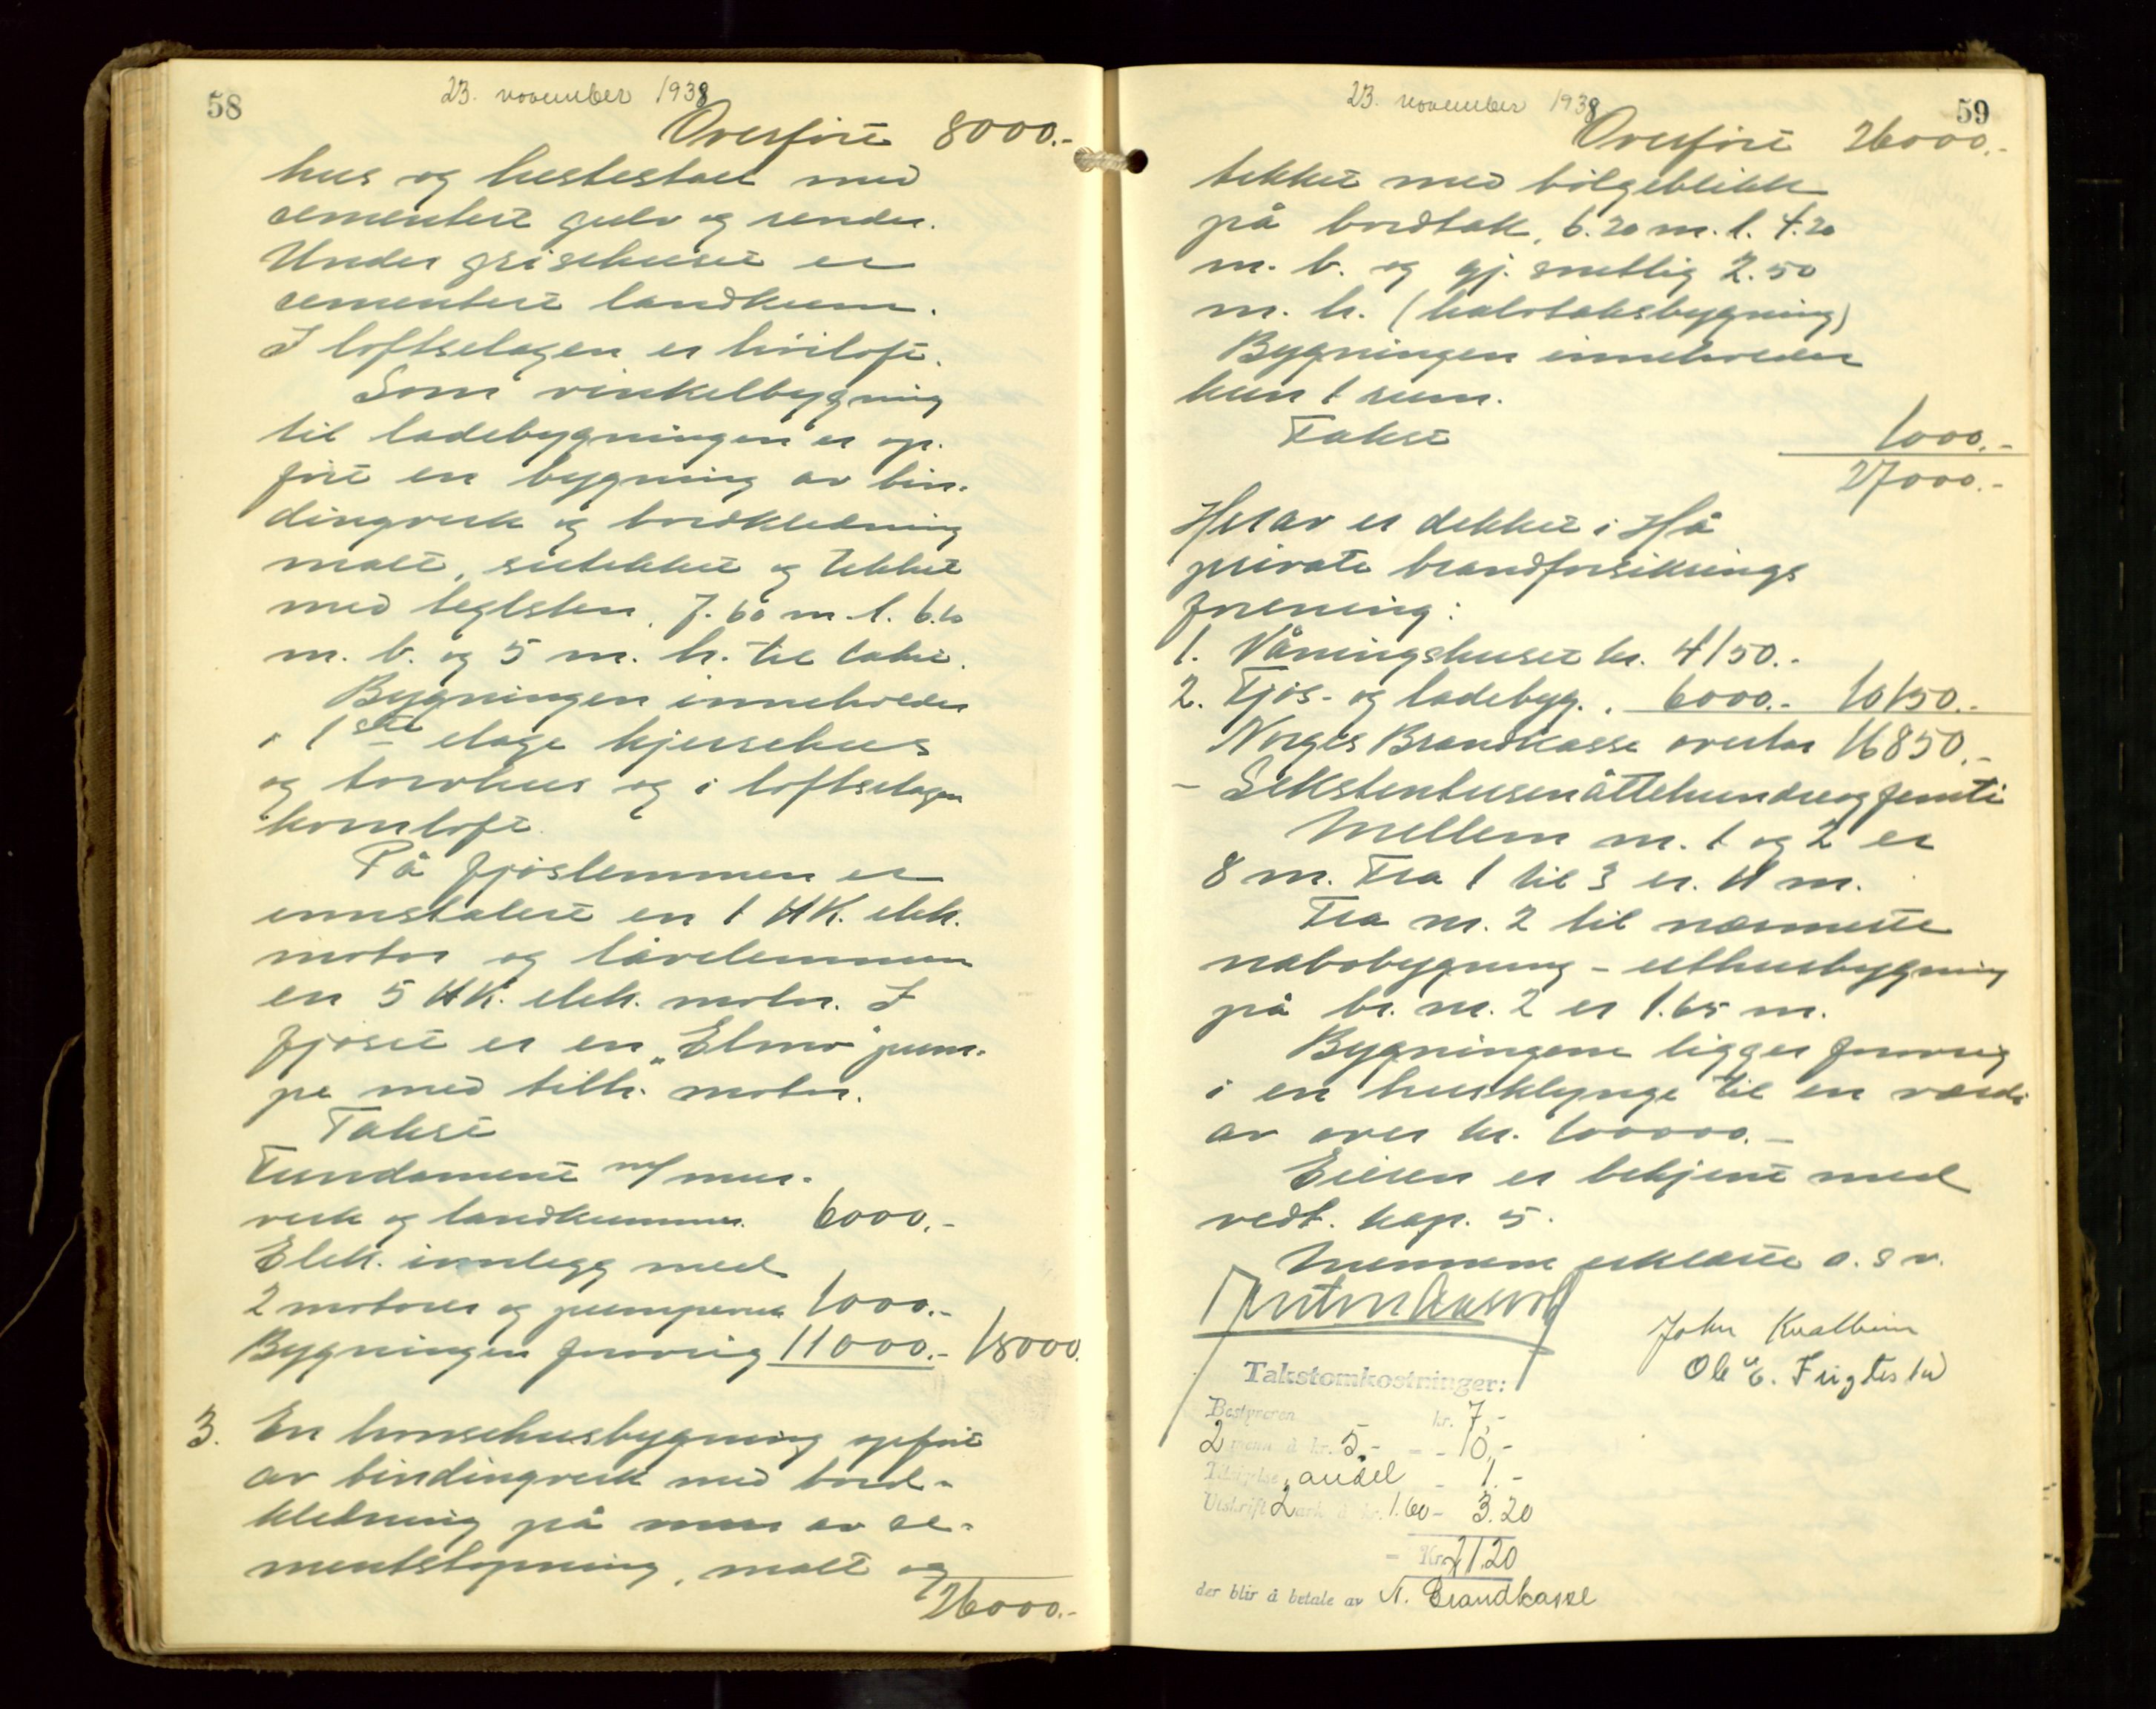 58
23. november 1938
Overført 8000.-
hus og hestestall med
cementert gulv og render.
Under grisehuset er
cementert landkum.
I loftsetagen er høiloft.
Som vinkelbygning
til ladebygningen er op-
ført en bygning av bin-
dingverk og bordkledning
malt, sutekket og tekket
med teglsten, 7.60 m. l. 6.10
m. b. og 5 m. h. til takst.
Bygningen inneholder
i 1ste etage kjerrehus
og torvhus og i loftsetagen
kornloft.
På fjøslemmen er
innstalert en 1 HK. elek.
motor og låvelemmen
en 5 HK. elek. motor. I
fjøset er en „Elmo" pum-
pe med tilh. motor.
Takst
Fundament m/ mur-
verk og landkummer 6000.-
Elek. innlegg med
2 motorer og pumpeverk 1000.-
Bygningen forøvrig 11000.- 18000.
3. En hønsehusbygning opført
av bindingverk med bord-
kledning på mur av ce-
mentstøpning, malt og
26000.-
59
23. november 1938
Overført 26000.-
tekket med bølgeblikk
på bordtak, 6.20 m. l. 4.20
m. b. og gj. snittlig 2.50
m. h. (halvtaksbygning)
Bygningen inneholder
kun 1 rum.
Takst 1000.-
27000.-
Herav er dekket i Hå
private brandforsikrings
forening:
1. Våningshuset kr. 4150.-
2. Fjøs- og ladebyg. „ 6000.- 10150.-
Norges Brandkasse overtar 16850.-
- Sekstentusenåttehundreogfemti
Mellem nr. 1 og 2 er
8 m. Fra 1 til 3 er 11 m.
Fra nr. 2 til nærmeste
nabobygning - uthusbygning
på br. nr. 2 er 1.65 m.
Bygningene ligger forøvrig
i en husklynge til en verdi
av over kr. 100000.-
Eieren er bekjent med
vedt. kap. 5.
Mennene erklærte o. s. v.
John Kvalbein
Ole E. Fuglestad
Takstomkostninger:
Bestyreren kr. 7,-
2 menn à kr. 5,- - - 10,-
Tilsigelse, andel - 1.-
Utskrift 2 ark à kr. 1.60 - 3.20
- Kr. 21.20
der blir å betale av N. Brandkasse